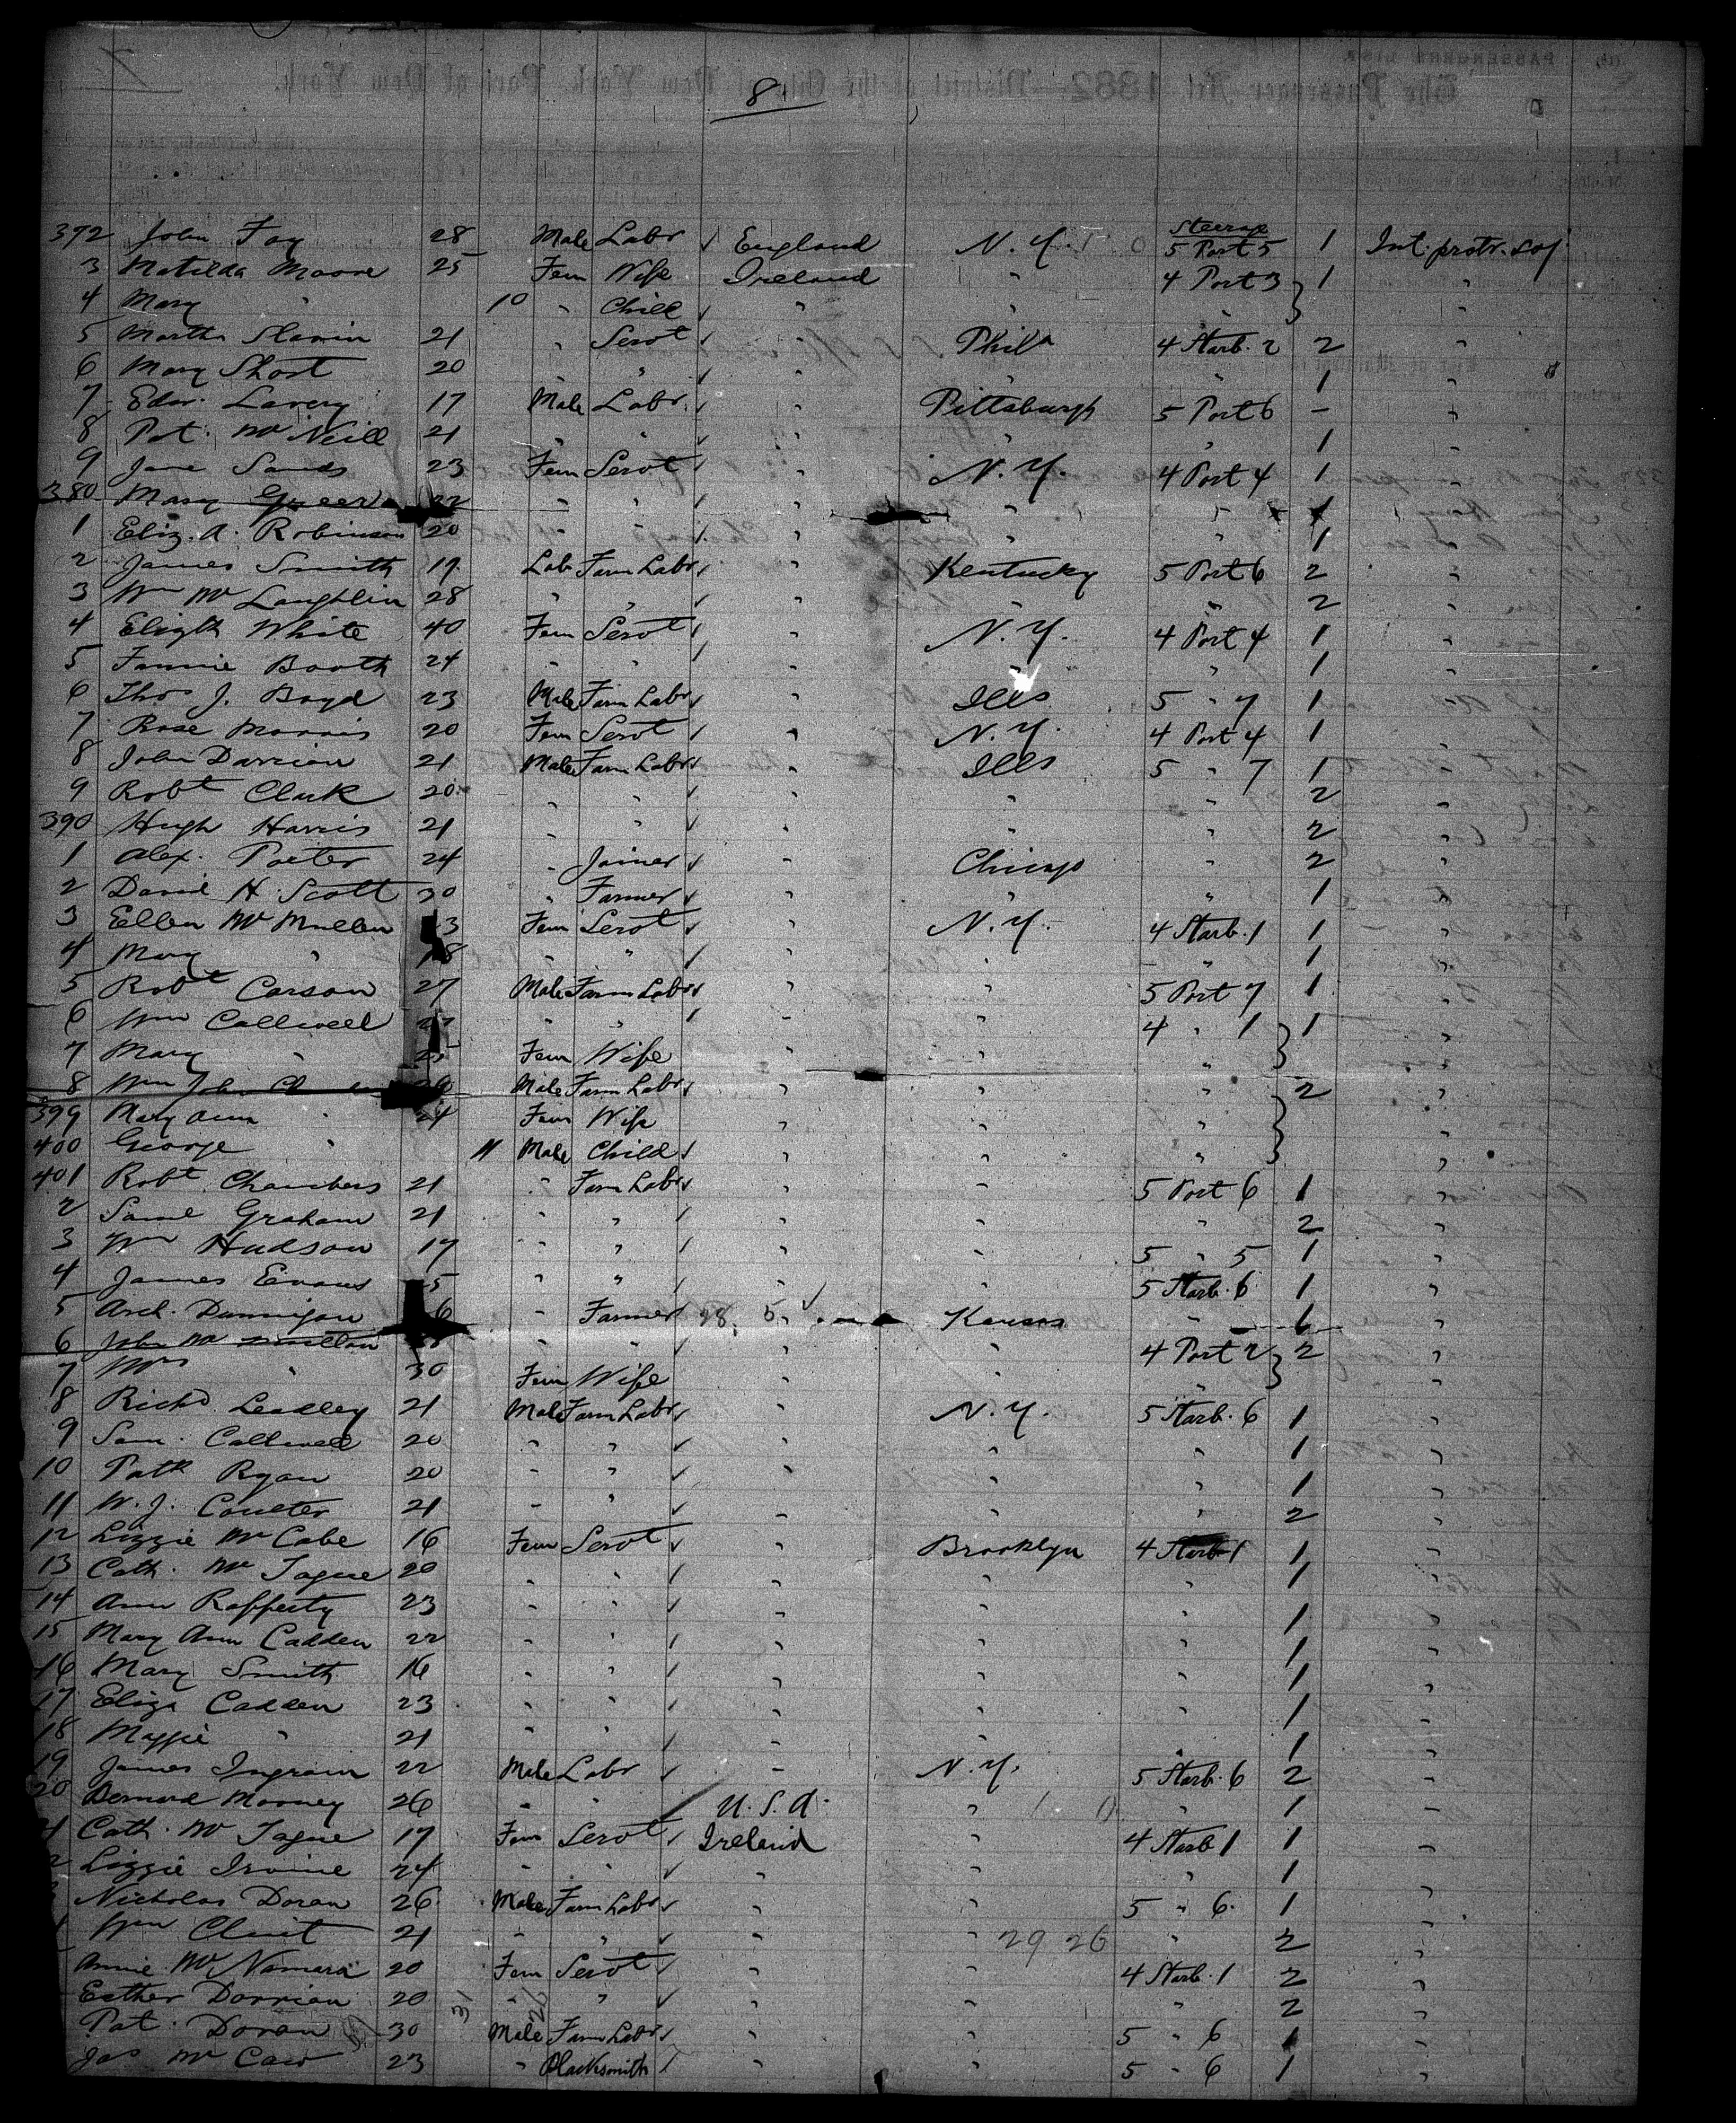 8
372 John Fay 28 Male Labr ✓ England N.Y. Steerage 5 Port 5 1 Int. protr. soj
3 Matilda Moore 25 Fem Wife Ireland " 4 Port 3 } 1 "
4 Mary " 10 " Child ✓ " " "
5 Martha Slavin 21 " Servt ✓ " Phila 4 Starb. 2 2 "
6 Mary Short 20 " " ✓ " " " 1 "
7 Edw. Lavery 17 Male Labr. ✓ " Pittsburgh 5 Port 6 - "
8 Pat. Mc Neill 21 " " ✓ " " " 1 "
9 Jane Sands 23 Fem Servt ✓ " N.Y. 4 Port 4 1 "
380 Mary Greer 22 " " ✓ " " " 1
1 Eliz. A. Robinson 20 " " ✓ " " " 1 "
2 James Smith 19 Lab Farm Labr ✓ " Kentucky 5 Port 6 2 "
3 Wm Mc Laughlin 28 " " ✓ " " " 2 "
4 Elizth White 40 Fem Servt ✓ " N.Y. 4 Port 4 1 "
5 Fannie Booth 24 " " ✓ " " " 1 "
6 Thos J. Boyd 23 Male Farm Labr ✓ " Ills 5 " 7 1 "
7 Rose Morris 20 Fem Servt ✓ " N.Y. 4 Port 4 1 "
8 John Darrian 21 Male Farm Labr ✓ " Ills 5 " 7 1 "
9 Robt Clark 20 " " ✓ " " " 2 "
390 Hugh Harris 21 " " ✓ " " " 2 "
1 Alex. Porter 24 " Joiner ✓ " Chicago " 2 "
2 David H. Scott 30 " Farmer ✓ " " " 1 "
3 Ellen Mc Mullen 3 Fem Servt ✓ " N.Y. 4 Starb. 1 1 "
4 Mary " 18 " " ✓ " " " 1 "
5 Robt Carson 27 Male Farm Labr ✓ " " 5 Port 7 1 "
6 Wm Calliwell " " ✓ " " 4 " 1 } 1 "
7 Mary " Fem Wife " " " "
8 Wm John Male Farm Labr ✓ " " " 2 "
399 Mary Ann " 24 Fem Wife " " " } "
400 George " 11 Male Child ✓ " " " "
401 Robt. Chambers 21 " Farm Labr ✓ " " 5 Port 6 1 "
2 Saml Graham 21 " " ✓ " " " 2 "
3 Wm Hudson 17 " " ✓ " " 5 " 5 1 "
4 James Evans 5 " " ✓ " " 5 Starb. 6 1 "
5 Arch. Dunnigan 6 " Farmer 28. 5 ✓ " Kansas " 1 "
6 John Mc " " ✓ " " 4 Port 2 } 2 "
7 Mrs " 30 Fem Wife " " " "
8 Richd. Leadley 21 Male Farm Labr ✓ " N.Y. 5 Starb. 6 1 "
9 Sam. Calliwell 20 " " ✓ " " " 1 "
10 Patk Ryan 20 " " ✓ " " " 1 "
11 W. J. Coulter 21 " " ✓ " " " 2 "
12 Lizzie Mc Cabe 16 Fem Servt ✓ " Brooklyn 4 Starb 1 1 "
13 Cath. Mc Tague 20 " " ✓ " " " 1 "
14 Ann Rafferty 23 " " ✓ " " " 1 "
15 Mary Ann Cadden 22 " " ✓ " " " 1 "
16 Mary Smith 16 " " ✓ " " " 1 "
17 Eliza Cadden 23 " " ✓ " " " 1 "
18 Maggie " 21 " " ✓ " " " 1 "
19 James Ingram 22 Male Labr ✓ " N.Y. 5 Starb. 6 2 "
20 Bernard Mooney 26 " " U.S.A. " 1 0 " 1 "
Cath. Mc Tague 17 Fem Servt ✓ Ireland " 4 Starb 1 1 "
2 Lizzie Irvine 24 " " ✓ " " " 1 "
Nicholas Doran 26 Male Farm Labr ✓ " " 5 " 6. 1 "
Wm Clint 21 " " ✓ " " 29 26 " 2 "
Annie Mc Namara 20 Fem Servt ✓ " " 4 Starb. 1 2 "
Esther Dorrian 20 31 " " ✓ " " " 2 "
Pat. Doran 30 Male Farm Labr ✓ " " 5 " 6 1 "
Jas Mc Caw 23 " Blacksmith ✓ " " 5 " 6 1 "